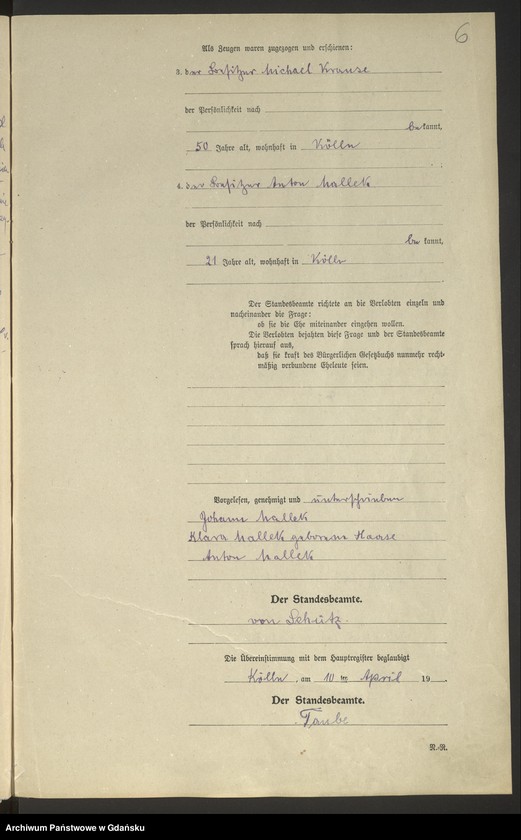 6
Als Zeugen waren zugezogen und erschienen:
3. der Besitzer Michael Krause
der Persönlichkeit nach
bekannt,
50 Jahre alt, wohnhaft in Kölln
4. der Besitzer Anton Mallek
der Persönlichkeit nach
bekannt,
21 Jahre alt, wohnhaft in Kölln
Der Standesbeamte richtete an die Verlobten einzeln und
nacheinander die Frage:
ob sie die Ehe miteinander eingehen wollen.
Die Verlobten bejahten diese Frage und der Standesbeamte
sprach hierauf aus,
daß sie kraft des Bürgerlichen Gesetzbuchs nunmehr recht-
mäßig verbundene Eheleute seien.
Vorgelesen, genehmigt und unterschrieben
Johann Mallek
Klara Mallek geborene Haase
Anton Mallek
Der Standesbeamte.
von Schütz
Die Übereinstimmung mit dem Hauptregister beglaubigt
Kölln, am 10 ten April 19
Der Standesbeamte.
Taube
N.-R.
Archiwum Państwowe w Gdańsku